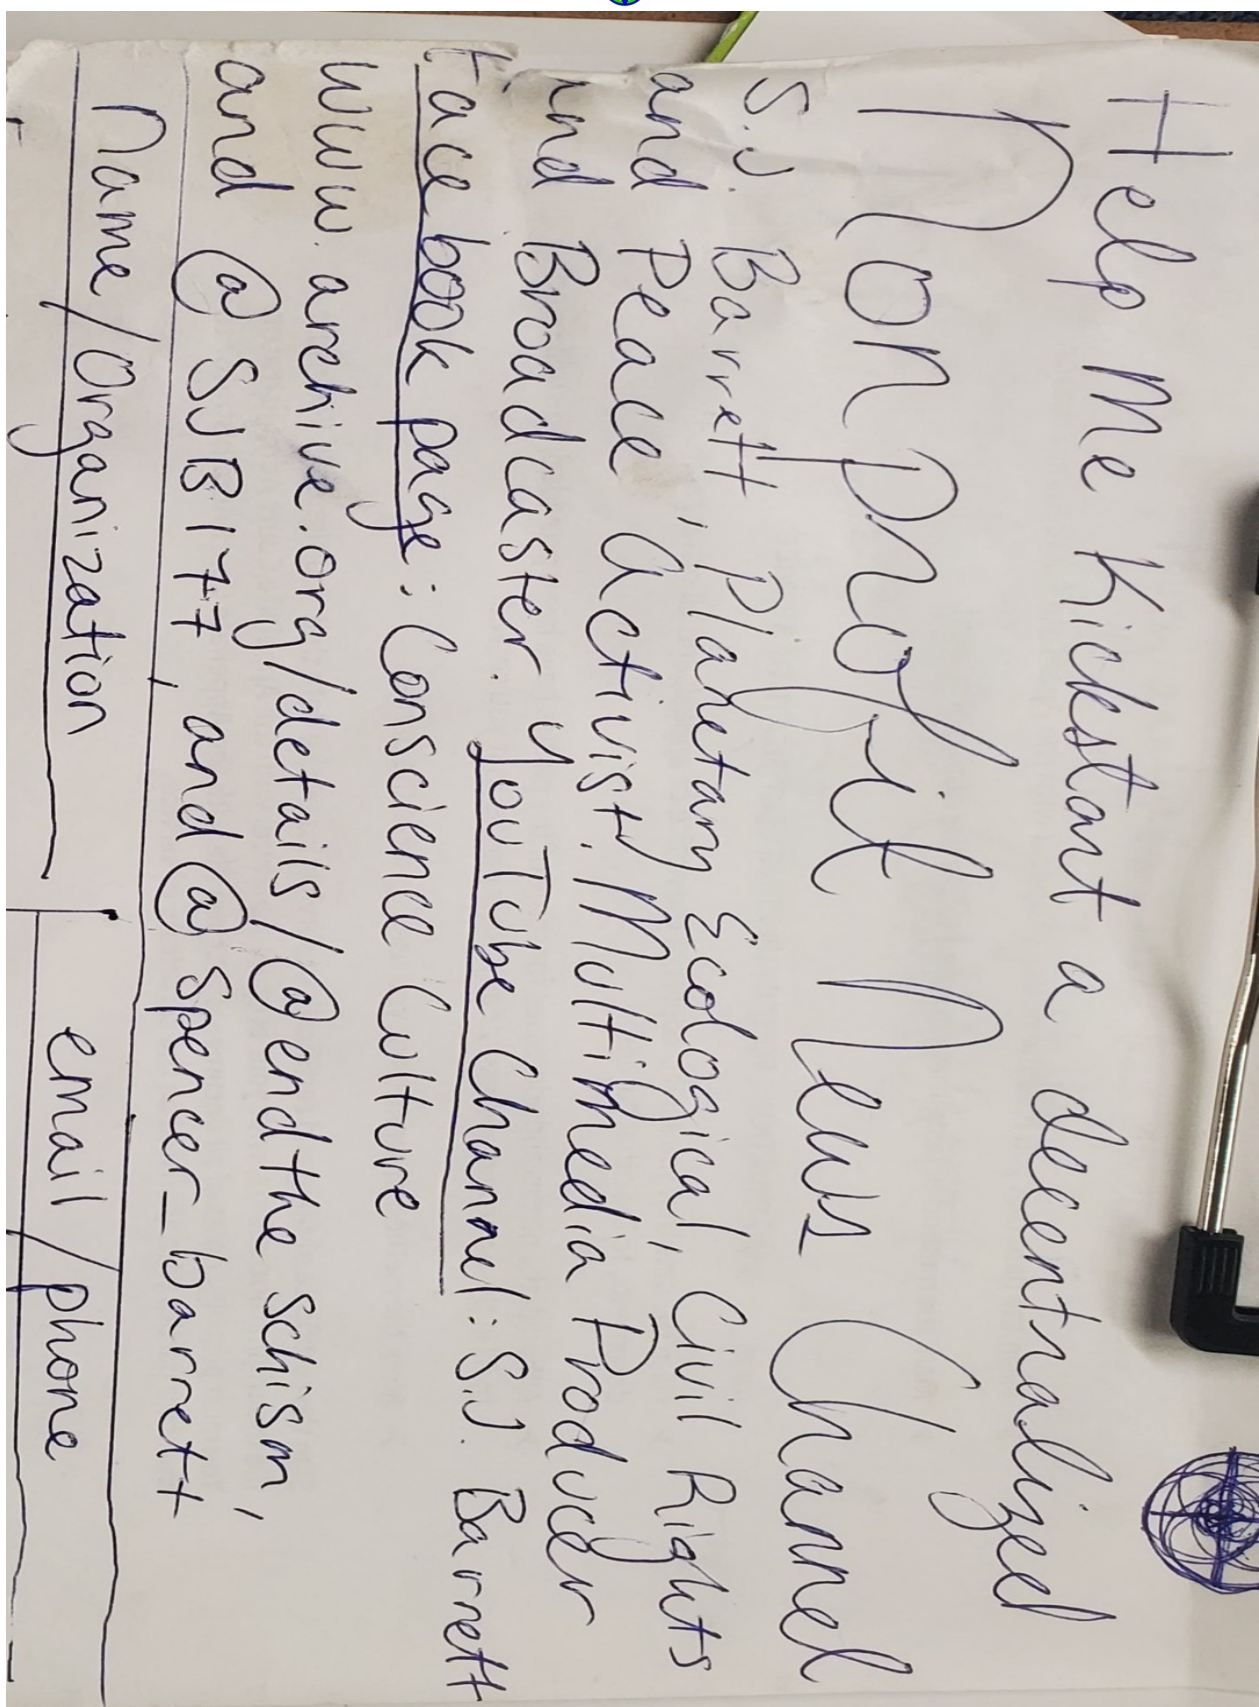 Help Me Kickstart a decentralized
Nonprofit News Channel
S.J. Barrett, Planetary Ecological, Civil Rights
and Peace Activist, Multimedia Producer
and Broadcaster. YouTube Channel: S.J. Barrett
Facebook page: Conscience Culture
www.archive.org/details/@endtheschism,
and @SJB177, and @Spencer_barrett
Name/Organization
email/phone